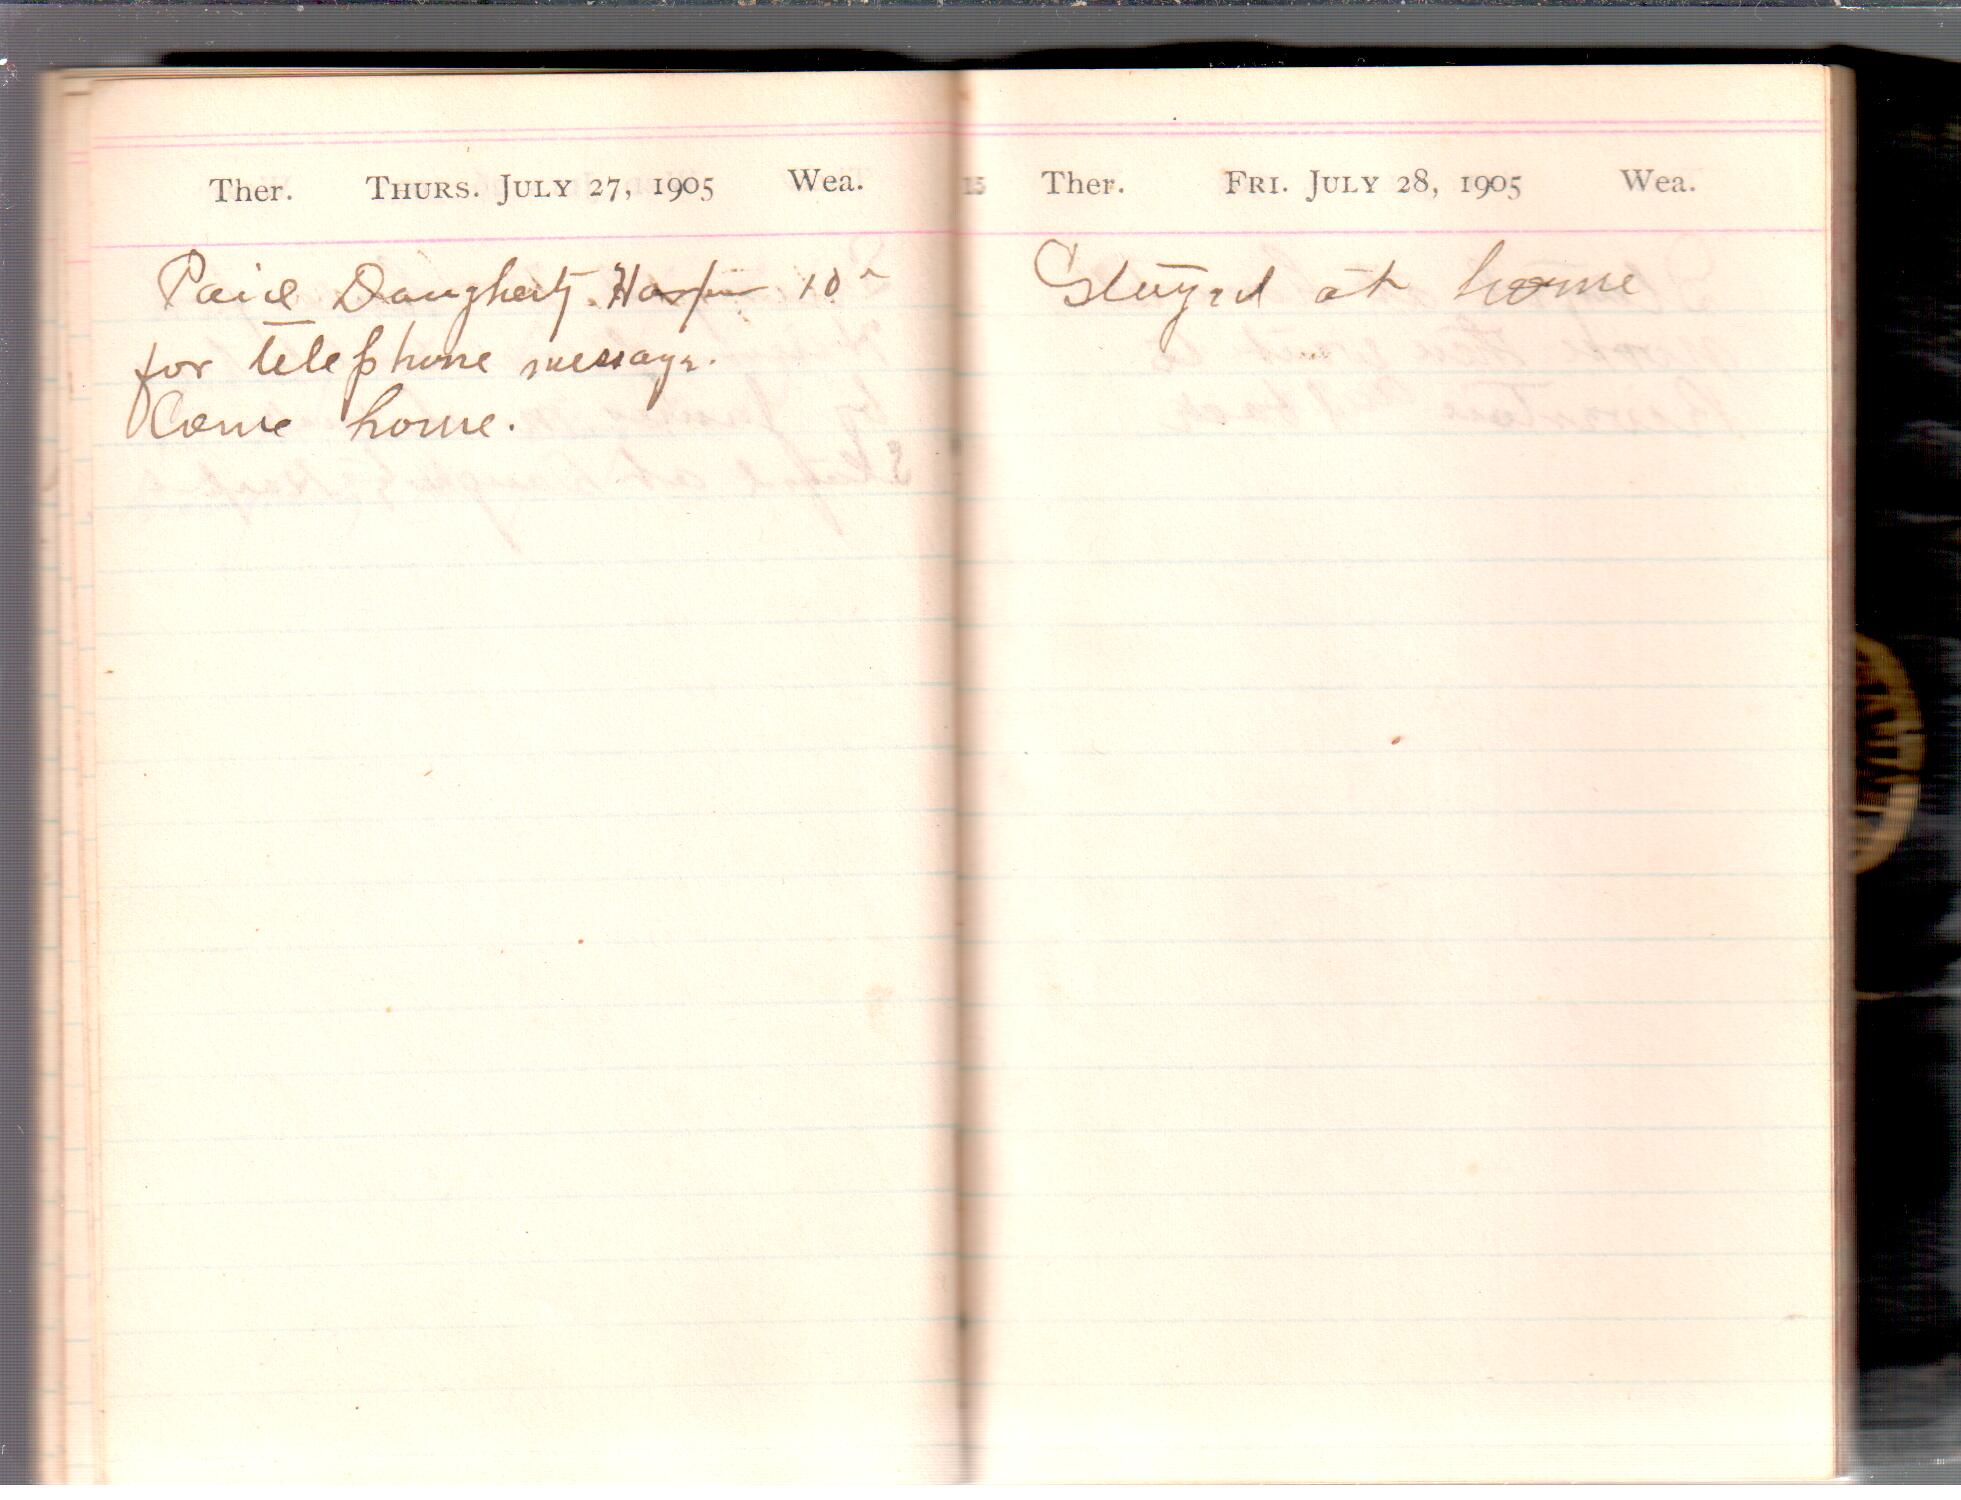 Ther. THURS. JULY 27, 1905 Wea.
Paid Daugherty 10
for telephone message.
Come home.
Ther. FRI. JULY 28, 1905 Wea.
Stayed at home